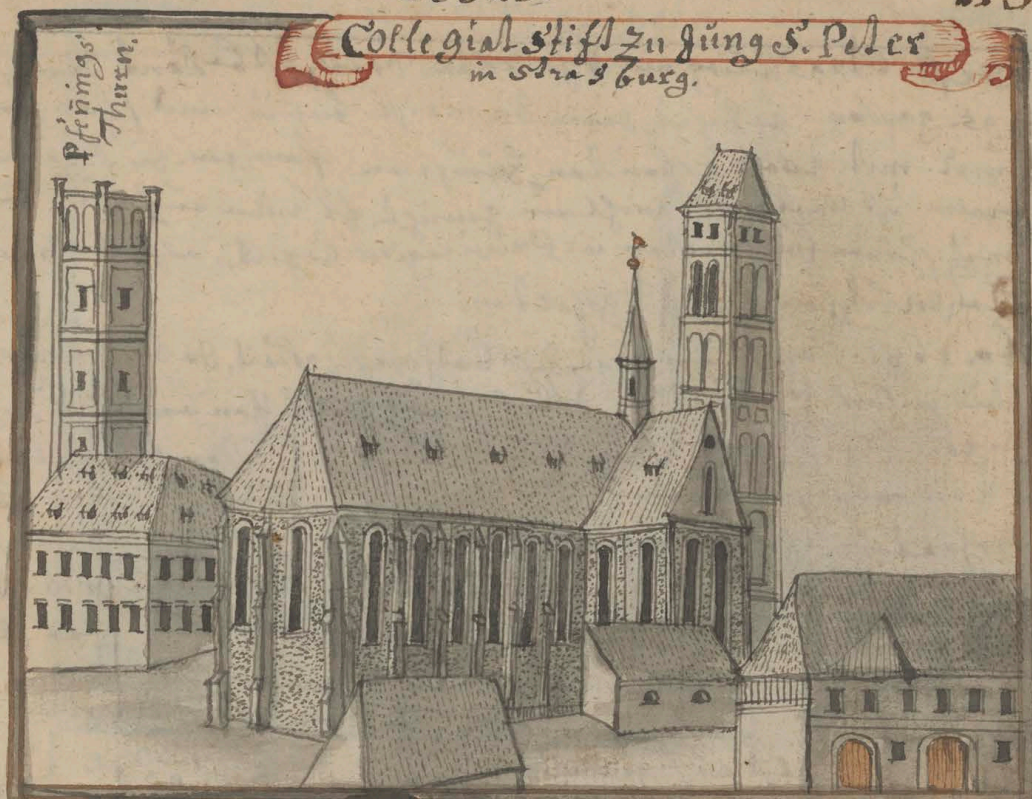 Collegiat Stift zu Jung S. Peter
in Strasburg.
Pfeñings
Thurn.